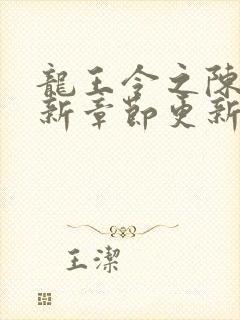 龍王令之陳
新章節更新
王潔